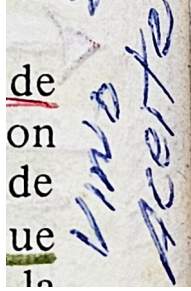 de
on
de
ue
la
vino
Acerte